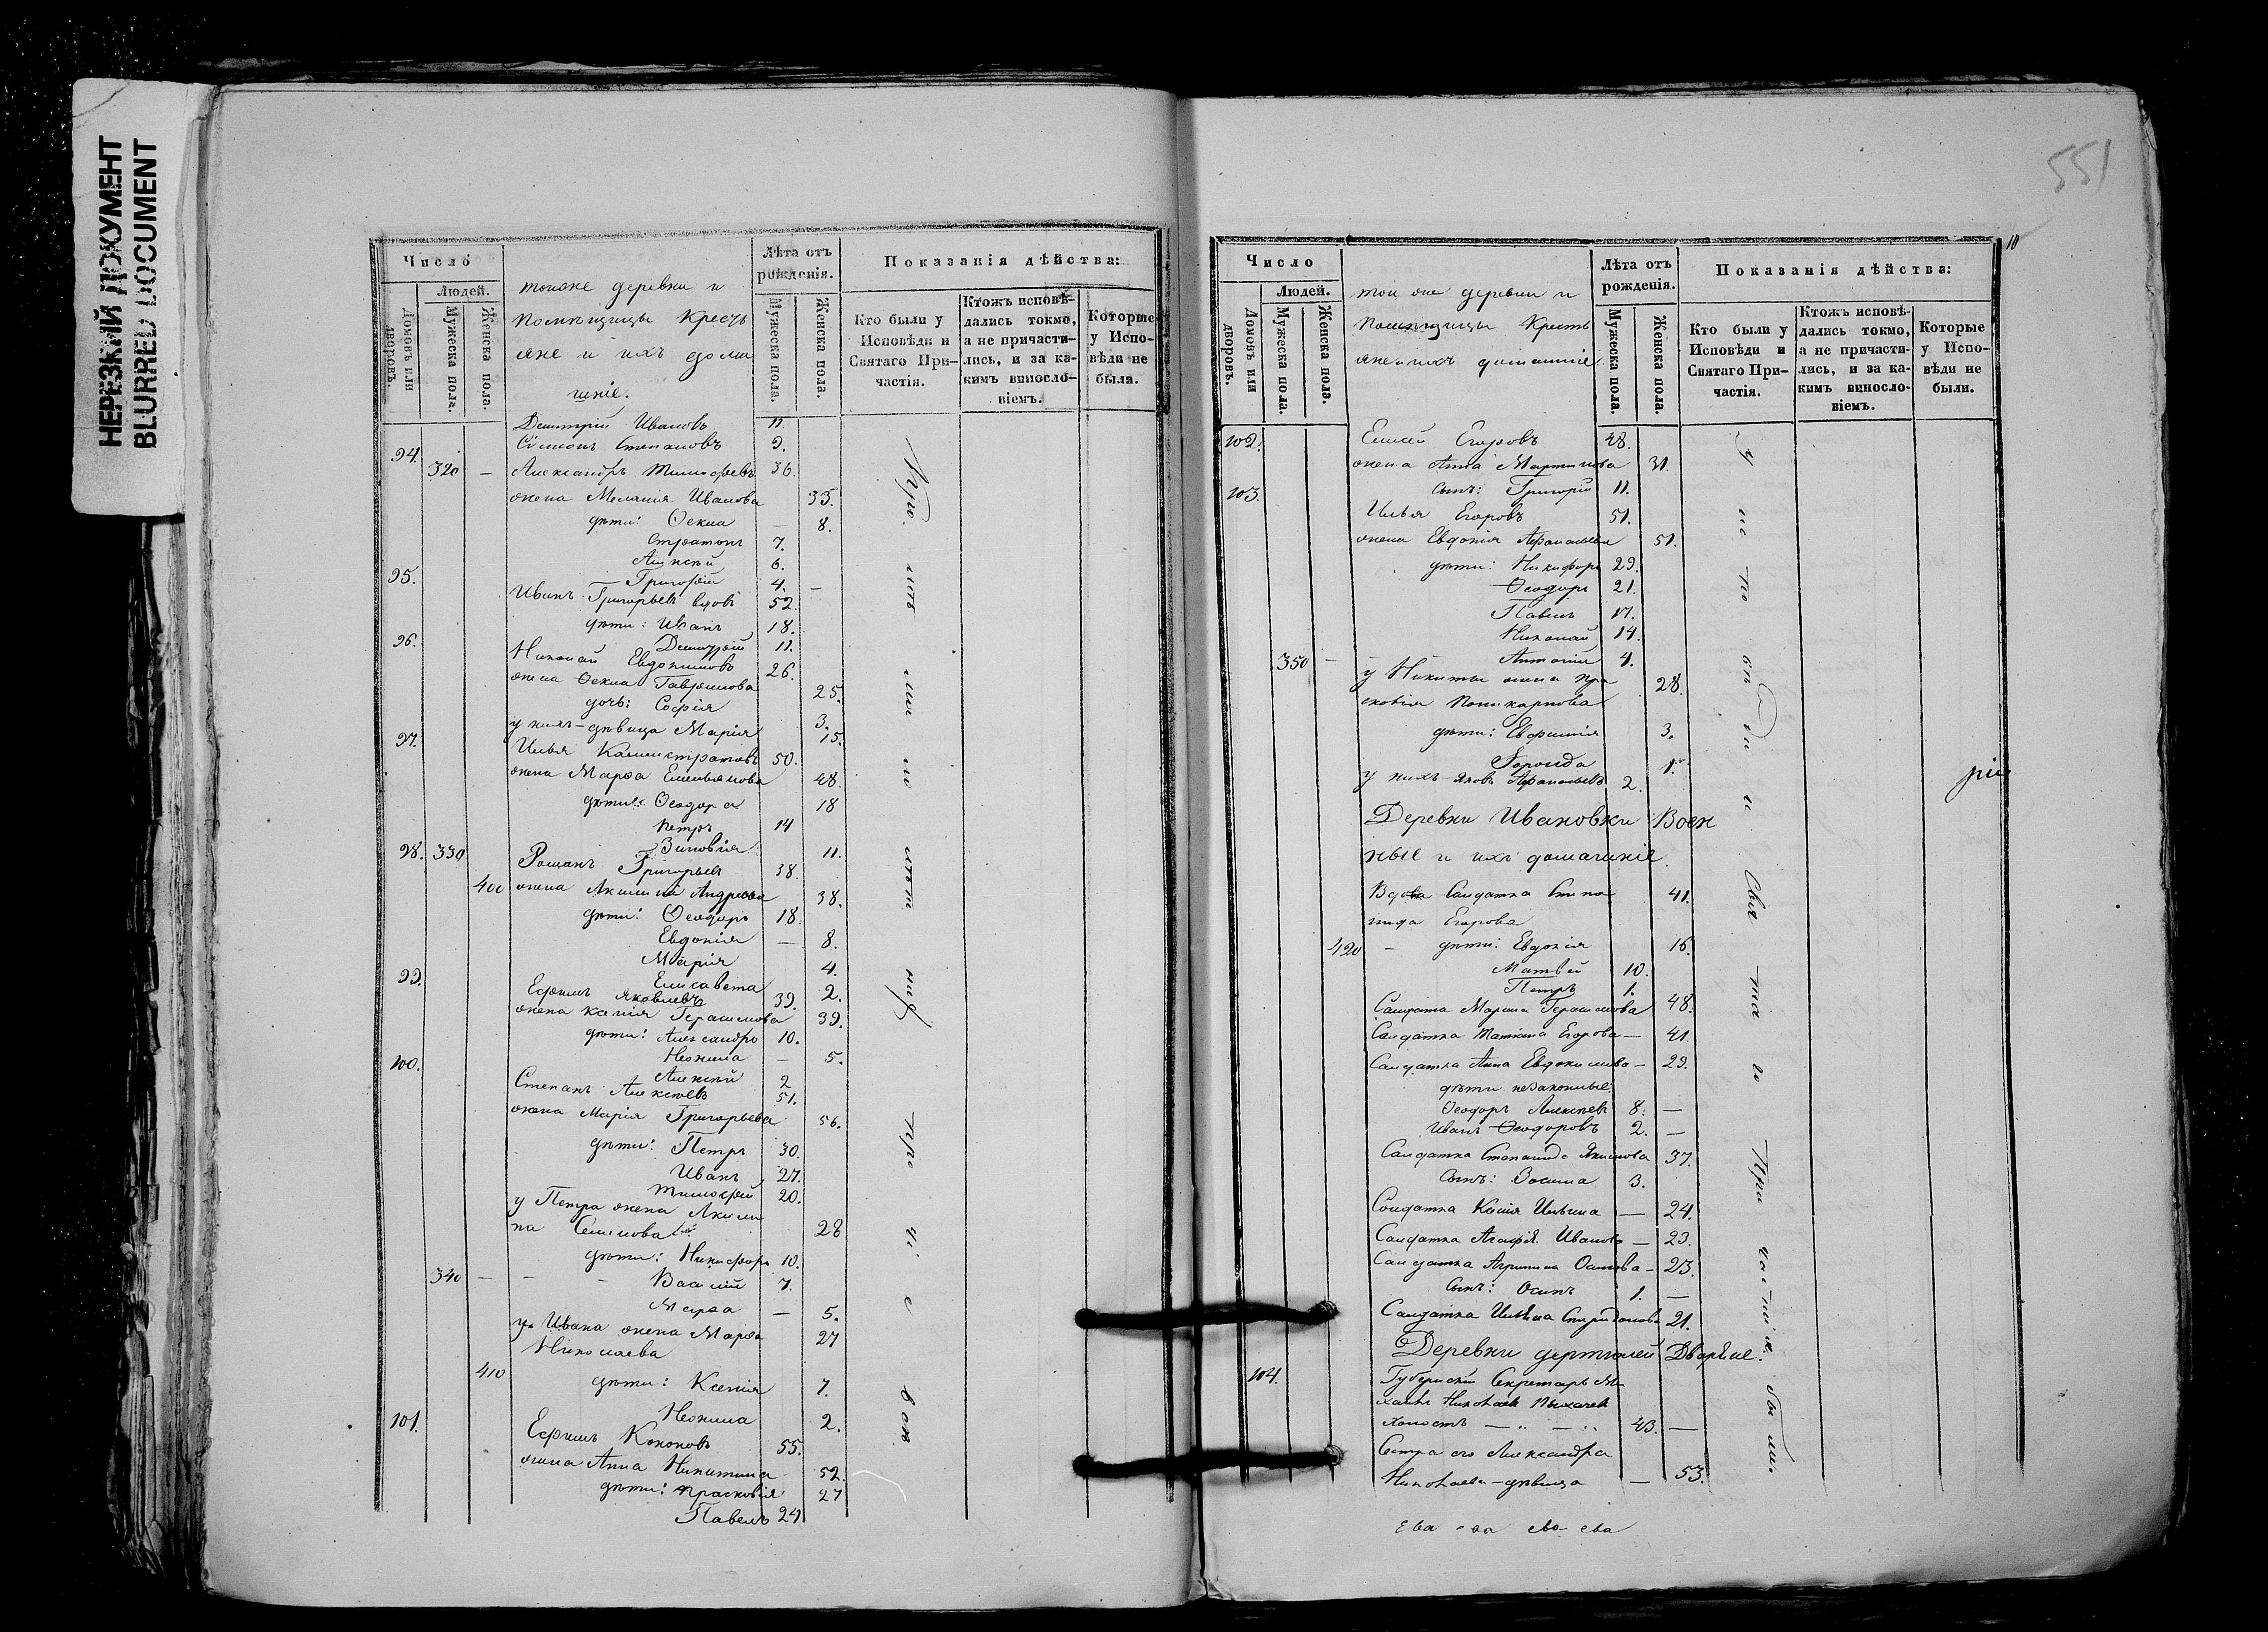 НЕРЕЗКИЙ ДОКУМЕНТ
BLURRED DOCUMENT
Число
Людей.
Домовъ или дворовъ.
Мужеска пола.
Женска пола.
тойже деревни и
помѣщицы Кресть
яне и ихъ дома
шніе.
Лѣта отъ рожденія.
Мужеска пола.
Женска пола.
Показанія дѣйства:
Кто были у Исповѣди и Святаго Причастія.
Ктожъ исповѣдались токмо, а не причастились, и за какимъ винословіемъ.
Которые у Исповѣди не были.
Димитрій Ивановъ 11.
Сімеонъ Степановъ 9.
94. 320 — Александръ Тимофеевъ 36.
жена Меланія Иванова 33.
дѣти: Ѳекла — 8.
Стратонъ 7.
Алексѣй 6.
Григорій 4. —
95. Иванъ Григорьевъ вдовъ 52.
дѣти: Иванъ 18.
Димитрій 11.
96. Николай Евдокимовъ 26.
жена Ѳекла Гаврилова 25.
дочь: Софія 3.
у нихъ-дѣвица Марія 15.
97. Илья Калистратовъ 50.
жена Марѳа Емельянова 48.
дѣти: Ѳеодора 18
Петръ 14
Зиновія 11.
98. 330 Романъ Григорьевъ 38.
400 жена Акилина Андреева 38.
дѣти: Ѳеодоръ 18.
Евдокія — 8.
Марія 4.
Елисавета 2.
99. Ефимъ Яковлевъ 39.
жена Ксенія Герасимова 39.
дѣти: Александръ 10.
Неонила — 5.
Алексѣй 2
100. Степанъ Алексѣевъ 51.
жена Марія Григорьева 56.
дѣти: Петръ 30.
Иванъ 27.
Тимофей 20.
у Петра жена Акили
на Семенова 28
дѣти: Никифоръ 10.
340 — — — Василій 7.
Марѳа — 5.
у Ивана жена Марѳа 27
Николаева
410 дѣти: Ксенія 7.
Неонила 2.
101. Ефимъ Кононовъ 55.
жена Анна Никитина 52.
дѣти: Прасковія 27
Павелъ 24
551
10
Число
Людей.
Домовъ или дворовъ.
Мужеска пола.
Женска пола.
той же деревни и
помѣщицы Кресть
яне и ихъ домашніе
Лѣта отъ рожденія.
Мужеска пола.
Женска пола.
Показанія дѣйства:
Кто были у Исповѣди и Святаго Причастія.
Ктожъ исповѣдались токмо, а не причастились, и за какимъ винословіемъ.
Которые у Исповѣди не были.
102. Елисей Егоровъ 48.
жена Анна Мартинова 31.
сынъ: Григорій 11.
103. Илья Егоровъ 51.
жена Евдокія Афанасьева 51.
дѣти: Никифоръ 29.
Ѳеодоръ 21.
Павелъ 17.
Николай 14.
350 — Антоній 4.
у Никиты жена Пра 28.
сковія Поликарпова
дѣти: Евфимія 3.
1.
у нихъ-Яковъ Афанасьевъ 2.
Деревни Ивановки Воен
ные и ихъ домашніе.
Вдова Салдатка Степа 41.
нида Егорова
420 — дѣти: Евдокія 16.
Матвѣй 10.
Петръ 1.
Салдатка Марина Герасимова 48.
Салдатка Татіана Егорова — 41.
Салдатка Анна Евдокимова — 29.
дѣти незаконные
Ѳеодоръ Алексѣевъ 8. —
Иванъ Ѳеодоровъ 2. —
Салдатка Степанида Якимова 37.
Сынъ: Зосима 3.
Солдатка Ксенія Ильина — 24.
Салдатка Агафія Иванова — 23.
Салдатка Агрипина Осипова — 23.
Сынъ: Осипъ 1. —
Салдатка Спиридонова 21.
Деревни Дворяне.
104. Губернскій Секретарь Ми
хаилъ Николаевъ
холостъ — 43. —
Сестра его Александра
Николаева-дѣвица — 53.
у исповѣди и святаго причастія были.